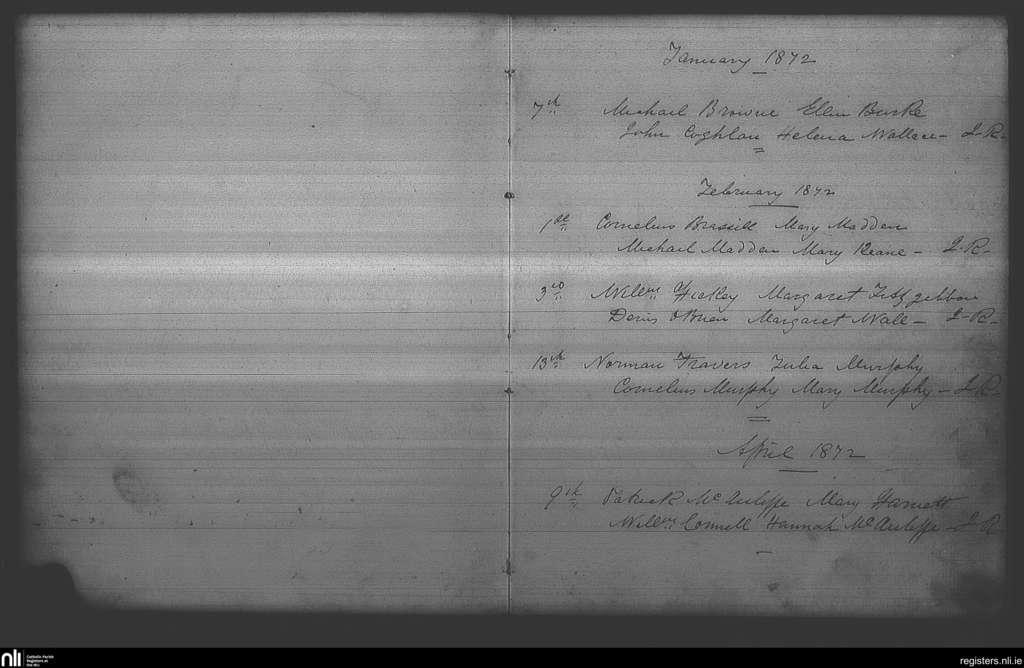 January 1872
7th Michael Browne Ellen Burke
John Coghlan Helena Wallace - J-R-
February 1872
1st Cornelius Brassill Mary Madden
Michael Madden Mary Keane - J-R-
3rd Willm Hickey Margaret Fitzgibbon
Denis OBrien Margaret Wall - J-R-
13th Norman Travers Julia Murphy
Cornelius Murphy Mary Murphy - J-R-
April 1872
9th Patrick McAuliffe Mary Harnett
Willm Connell Hannah McAuliffe - J-R
nli Catholic Parish
Registers at
the NLI
registers.nli.ie